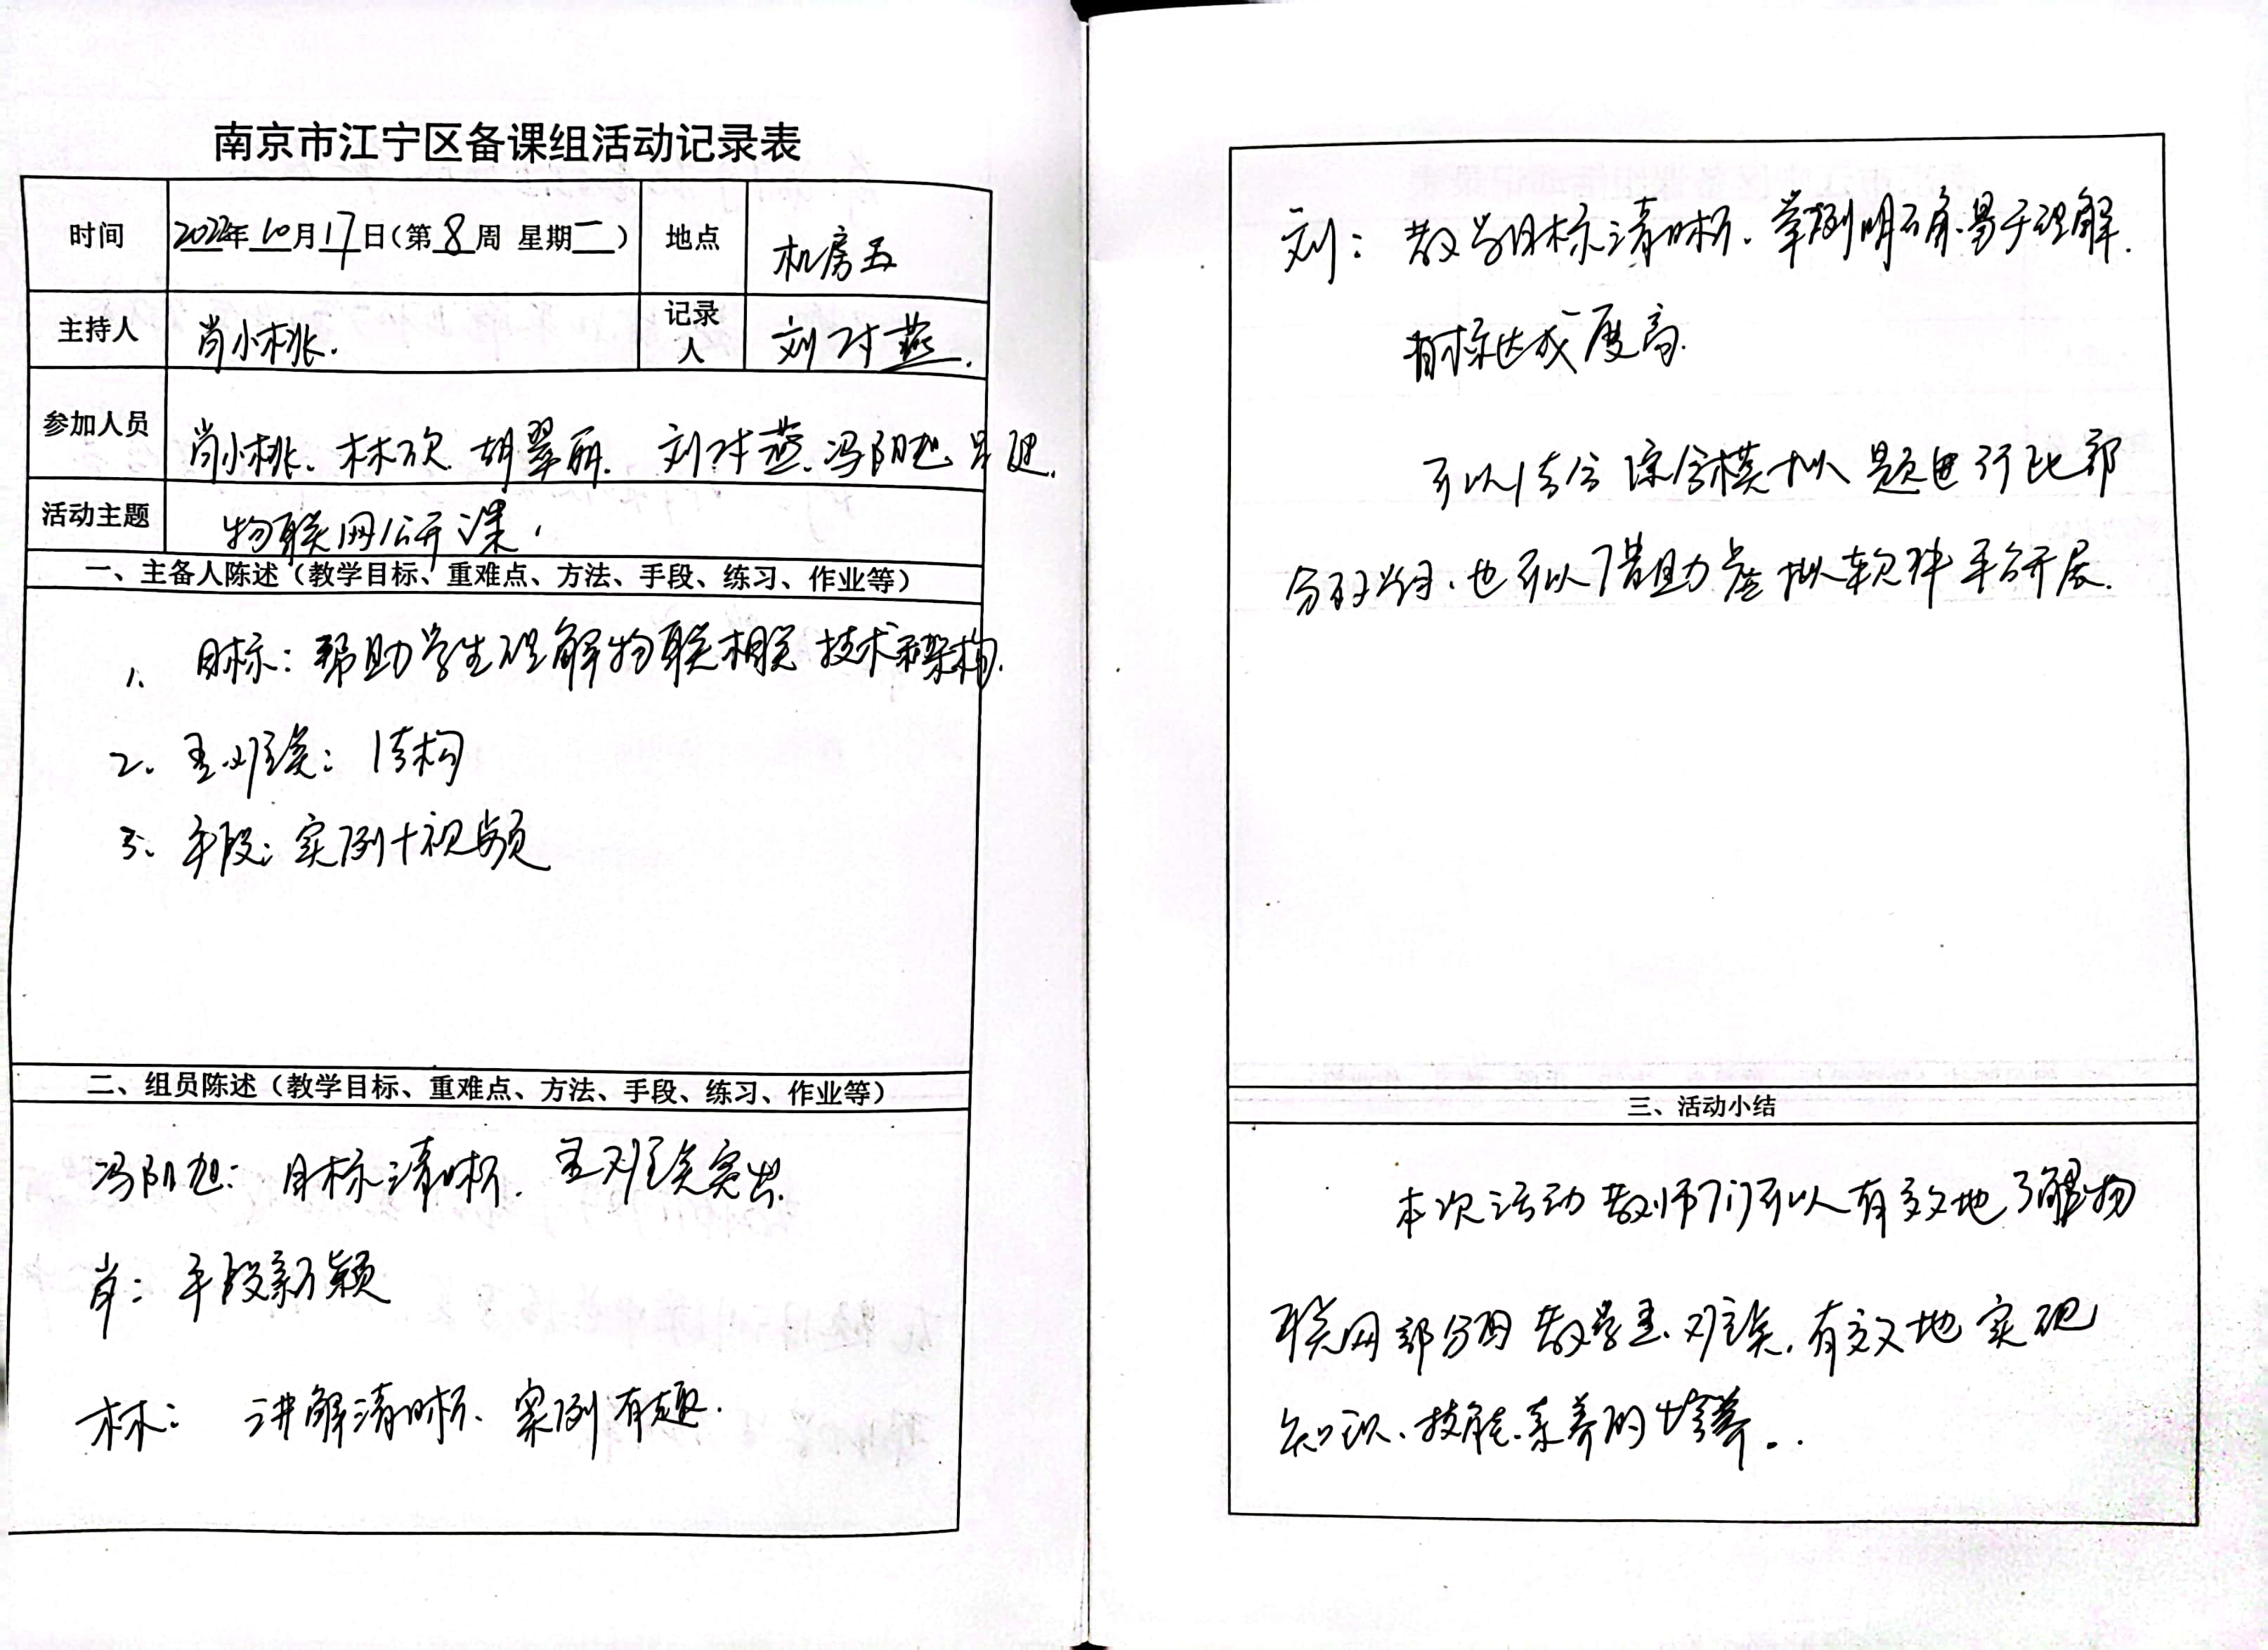 南京市江宁区备课组活动记录表
时间 2022年10月17日(第8周 星期二) 地点 机房五
主持人 肖小桃. 记录人 刘付燕.
参加人员 肖小桃、林欣、胡翠丽、刘付燕、冯阳旭、
活动主题 物联网公开课.
一、主备人陈述(教学目标、重难点、方法、手段、练习、作业等)
1. 目标:帮助学生理解物联相关技术和架构.
2. 重难点:结构
3. 手段:实例+视频
二、组员陈述(教学目标、重难点、方法、手段、练习、作业等)
冯阳旭:目标清晰.重难点突出.
肖:手段新颖
林:讲解清晰、案例有趣.
刘:教学目标清晰.举例明确.易于理解.
目标达成度高.
可以结合综合模拟题进行此部
分学习.也可以借助虚拟软件平台开展.
三、活动小结
本次活动教师们可以有效地了解物
联网部分的教学重、难点,有效地实现
知识、技能、素养的培养。